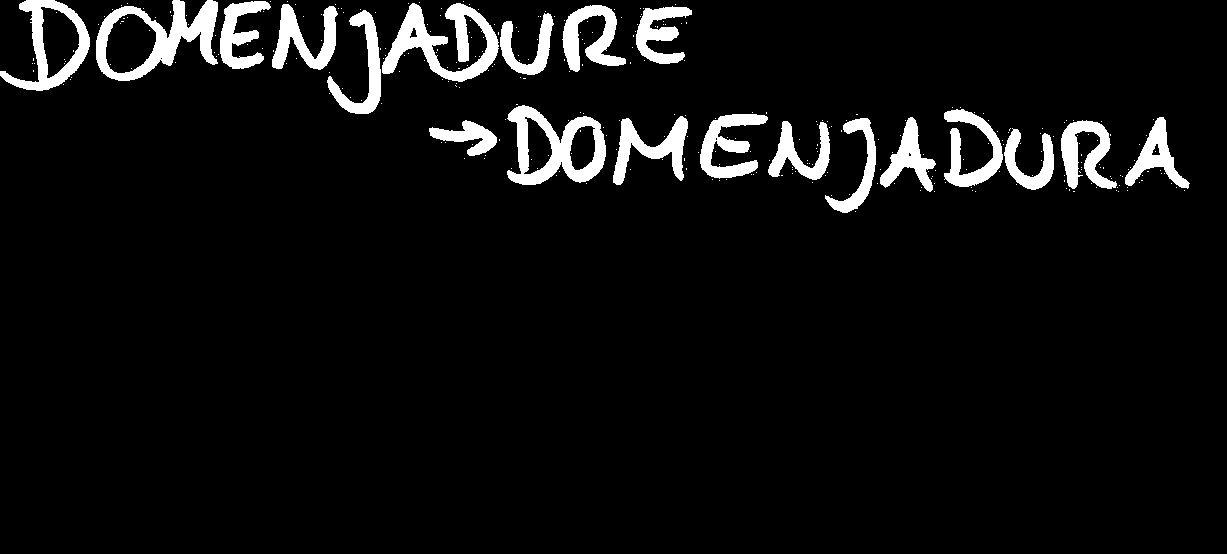 DOMENJADURE
→DOMENJADURA